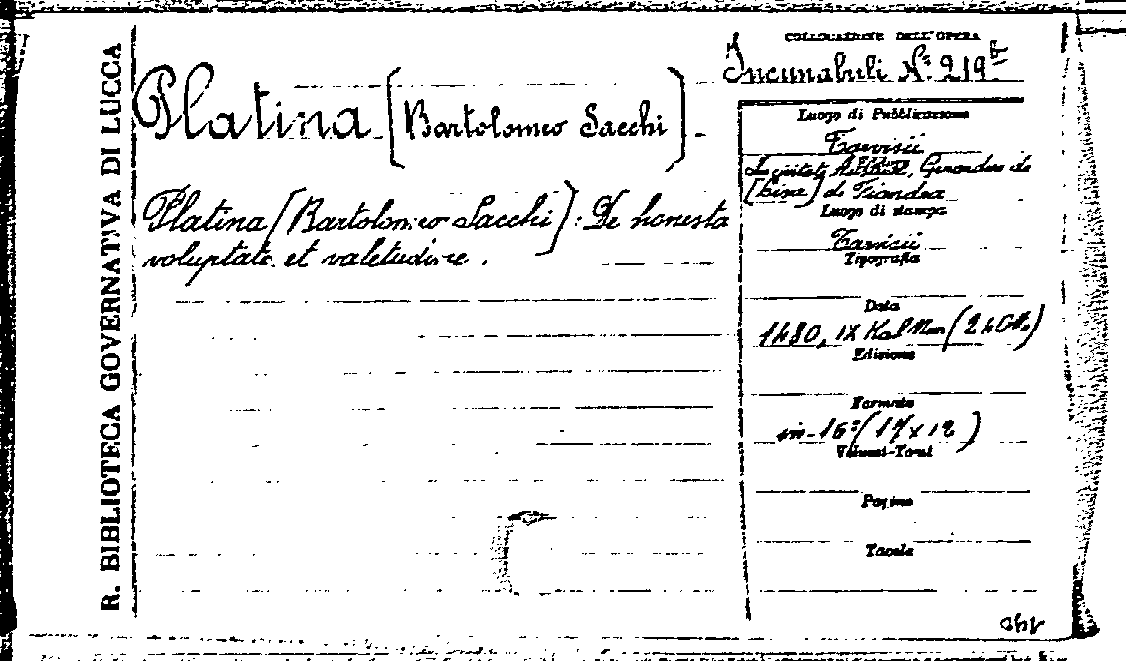 R. BIBLIOTECA GOVERNATIVA DI LUCCA
COLLOCAZIONE DELL'OPERA
Incunabuli N.º 219
Platina [Bartolomeo Sacchi]
Platina [Bartolomeo Sacchi]: De honesta
voluptate et valetudine.
Luogo di Pubblicazione
Tarvisii
Gerardus de
de Fiandra
Luogo di stampa
Tarvisii
Tipografia
Data
1480, IX Kal
Edizione
Formato
in-16º (17 x 12)
Volumi-Tomi
Pagine
Tavole